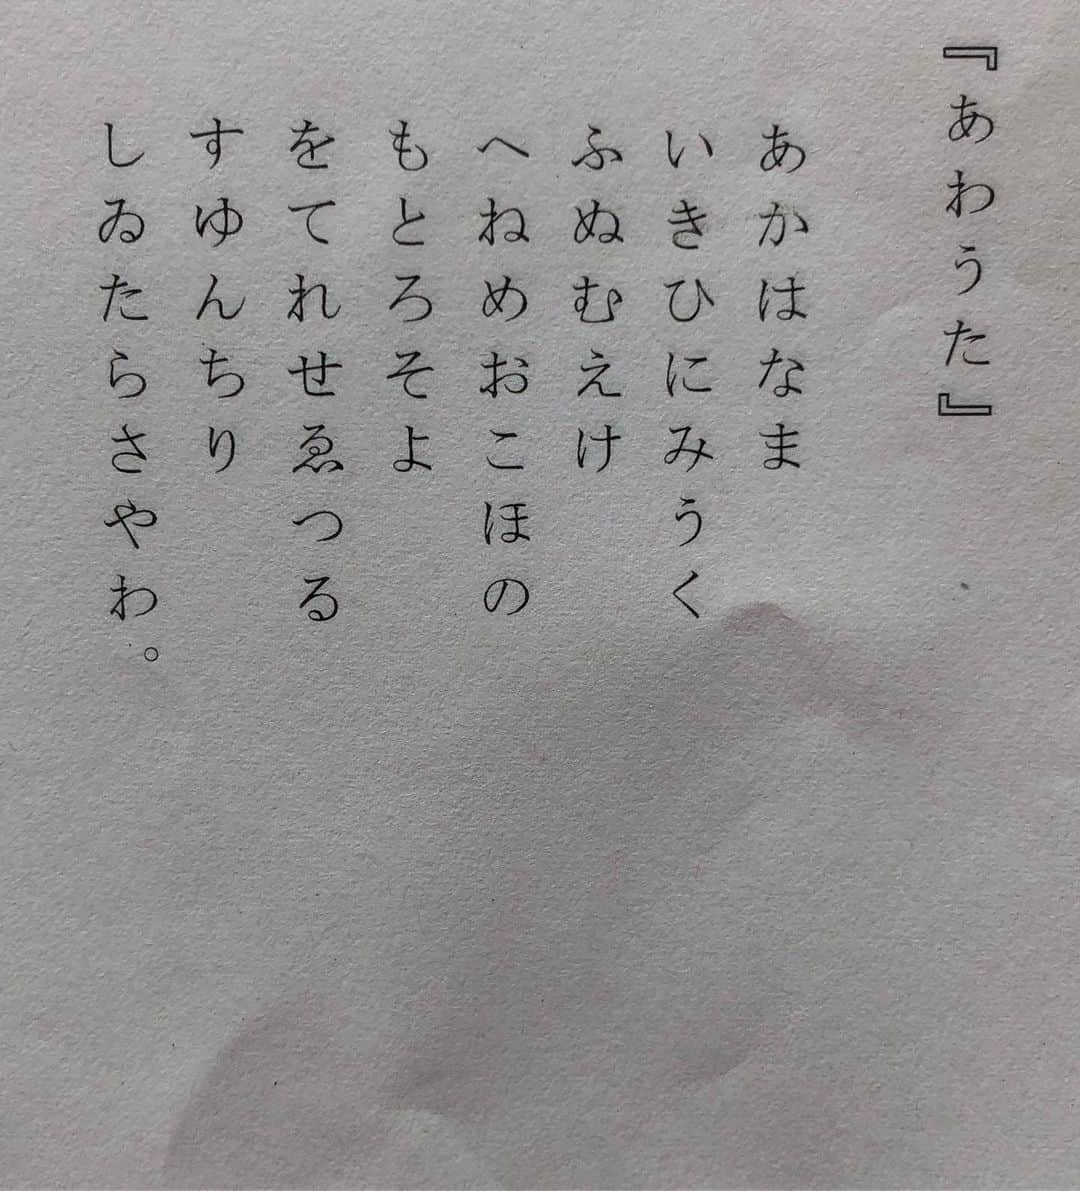 『あわうた』
あかはなま
いきひにみうく
ふぬむえけ
へねめおこほの
もとろそよ
をてれせゑつる
すゆんちり
しゐたらさやわ。